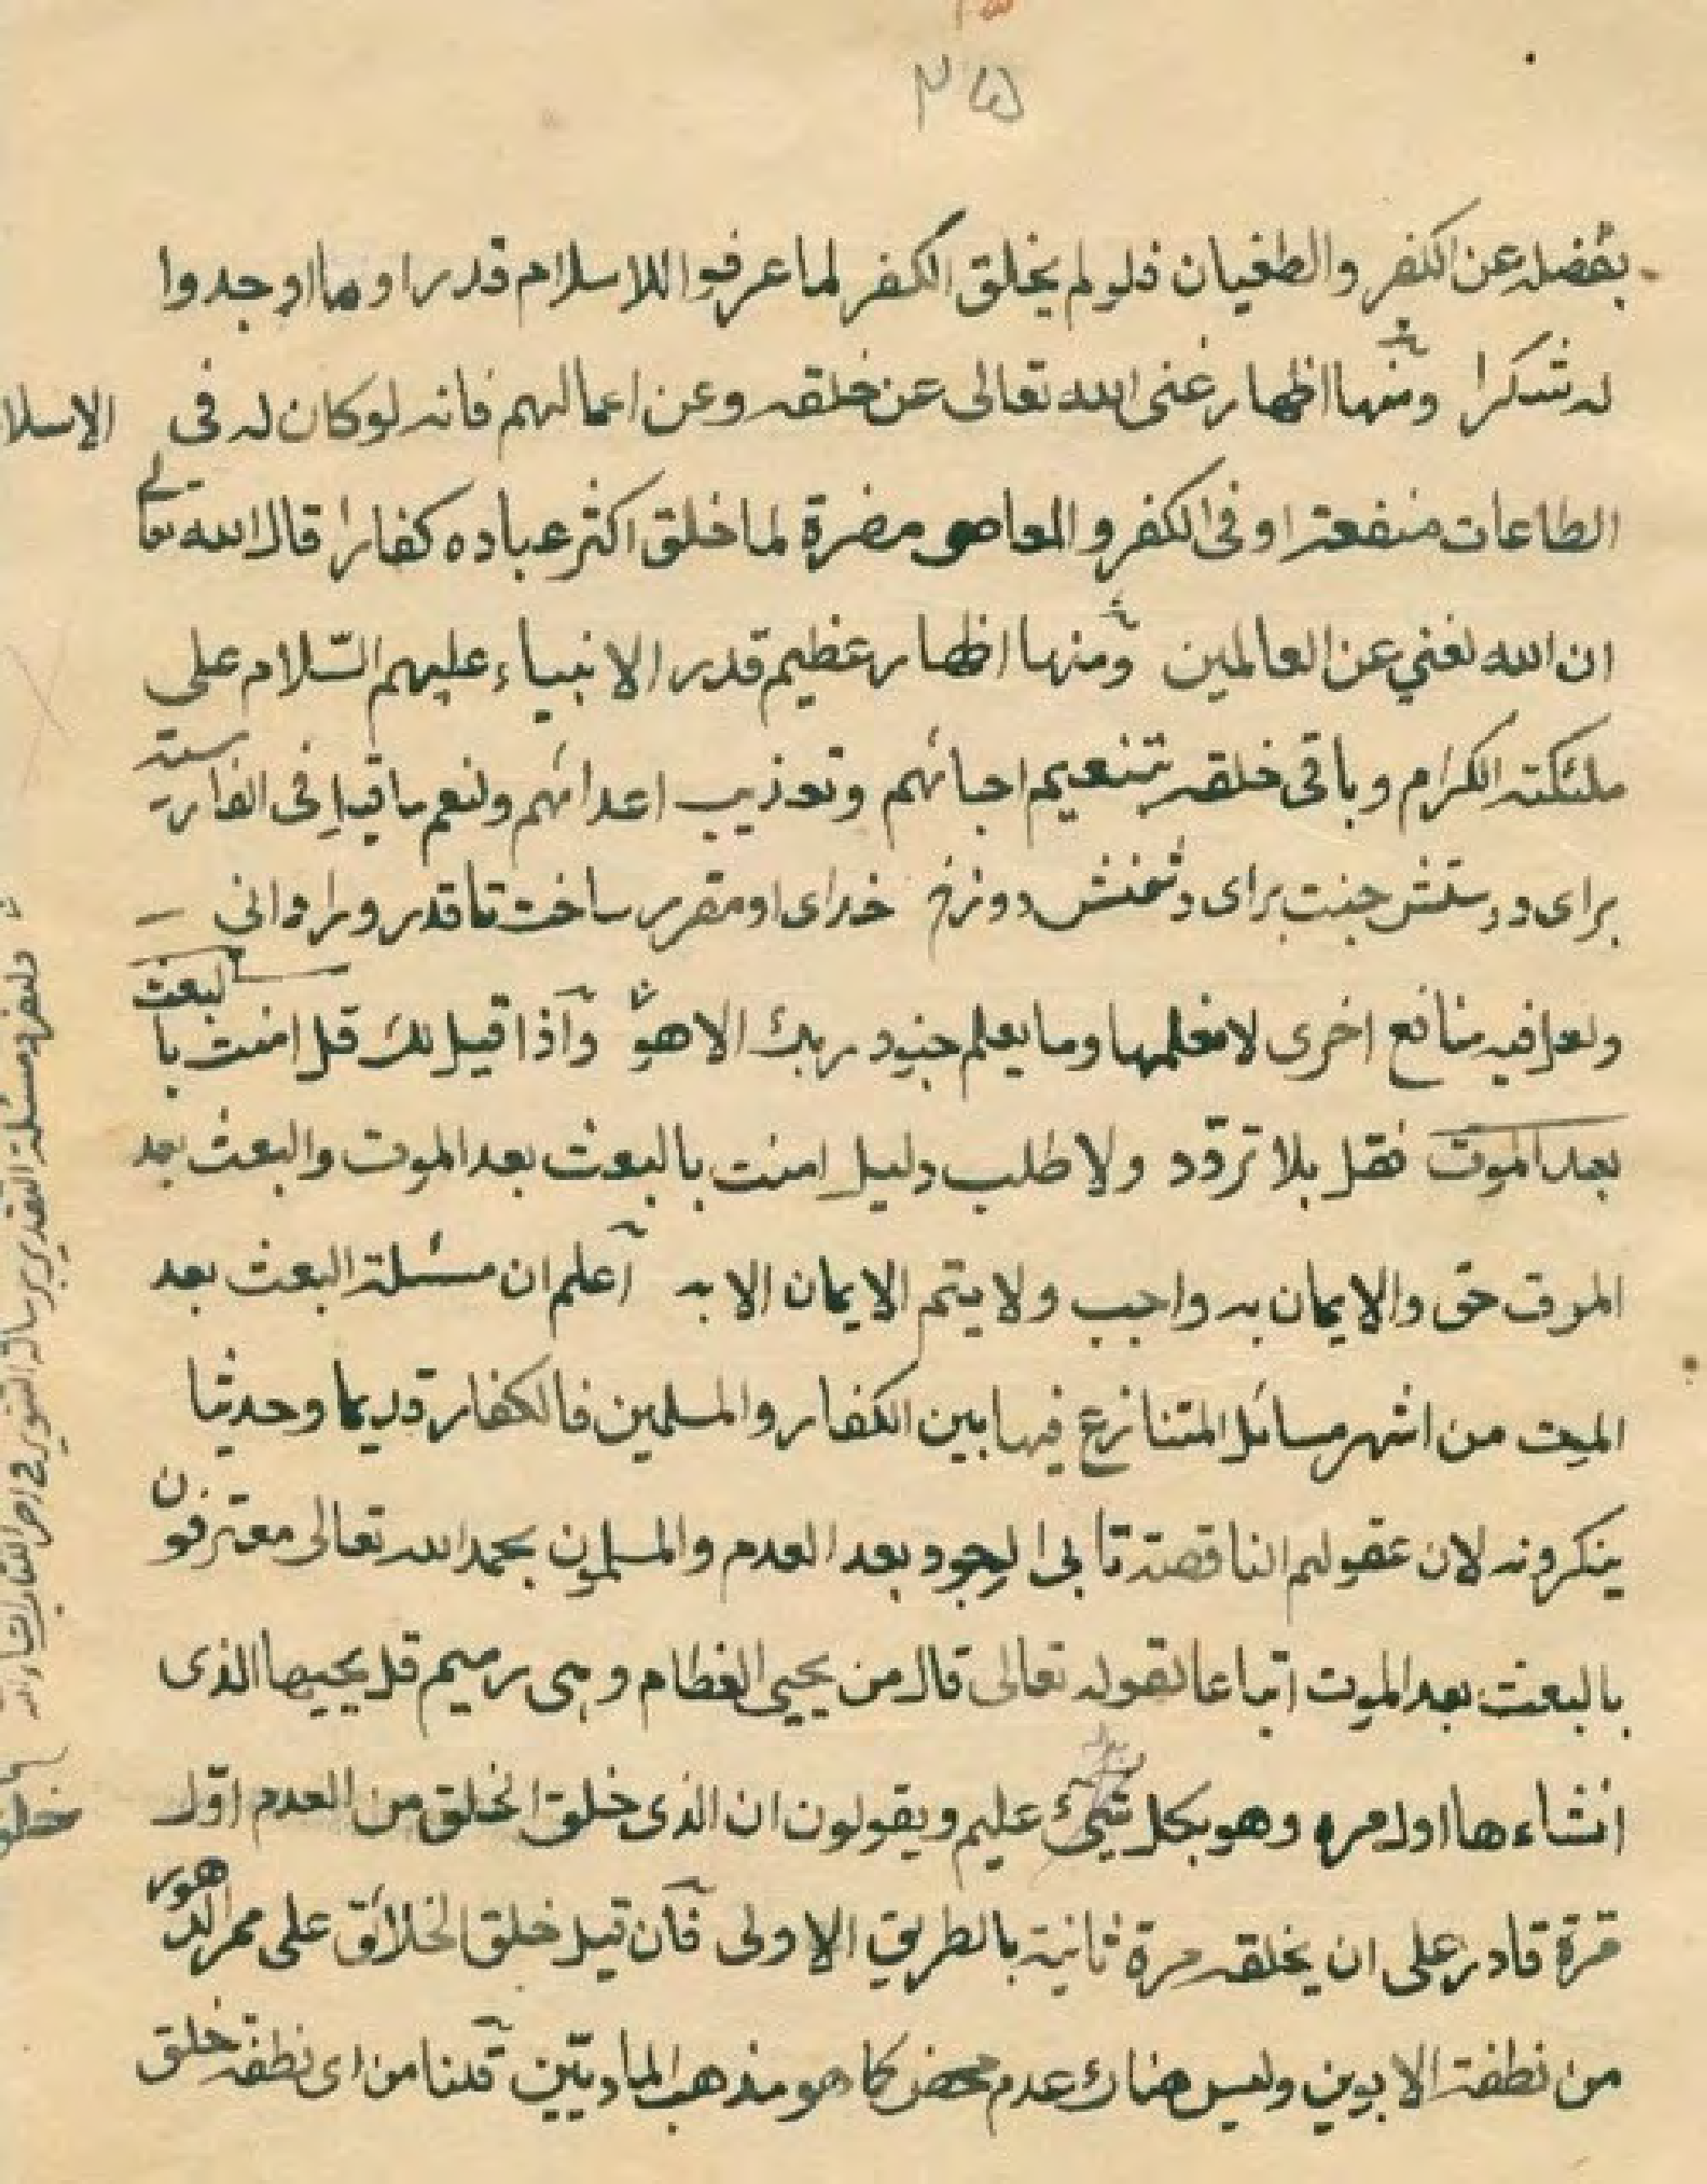 ٣٥
بفضله عن الكفر والطغيان فلو لم يخلق الكفر لما عرفوا للاسلام قدرا وما اوجدوا
له شكرا ومنها اظهار غنى الله تعالى عن خلقه وعن اعمالهم فانه لو كان له فى
الطاعات منفعة او فى الكفر والمعاصى مضرة لما خلق اكثر عباده كفارا قال الله تعالى
ان الله لغني عن العالمين ومنها اظهار عظيم قدر الانبياء عليهم السّلام على
ملئكته الكرام وباقى خلقه بتنعيم احبائهم وتعذيب اعدائهم ولنعم ما قيل فى الفارسية
براى دوستش جنت براى دشمنش دوزخ خداى او مقرر ساخت تا قدر ورا دانى
ولعل فيه منافع اخرى لا نعلمها وما يعلم جنود ربك الا هو وآذا قيل لك قل امنت بالبعث
بعد الموت فقل بلا تردّد ولا طلب دليل امنت بالبعث بعد الموت والبعث بعد
الموت حق والايمان به واجب ولا يتم الايمان الا به آعلم ان مسئلة البعث بعد
الموت من اشهر مسائل المتنازع فيها بين الكفار والمسلمين فالكفار قديما وحديثا
ينكرونه لان عقولهم الناقصة تابى الوجود بعد العدم والمسلمون بحمد الله تعالى معترفون
بالبعث بعد الموت اتباعا لقوله تعالى قال من يحيي العظام وهى رميم قل يحييها الذى
انشاءها اول مره وهو بكل شيئ عليم ويقولون ان الذى خلق الخلق من العدم اوّل
مرّة قادر على ان يخلقه مرة ثانية بالطريق الاولى فآن قيل خلق الخلائق على ممر الدهور
من نطفة الابوين وليس هناك عدم محض كما هو مذهب الماديّين قلنا من اى نطفة خلق
الاسلا